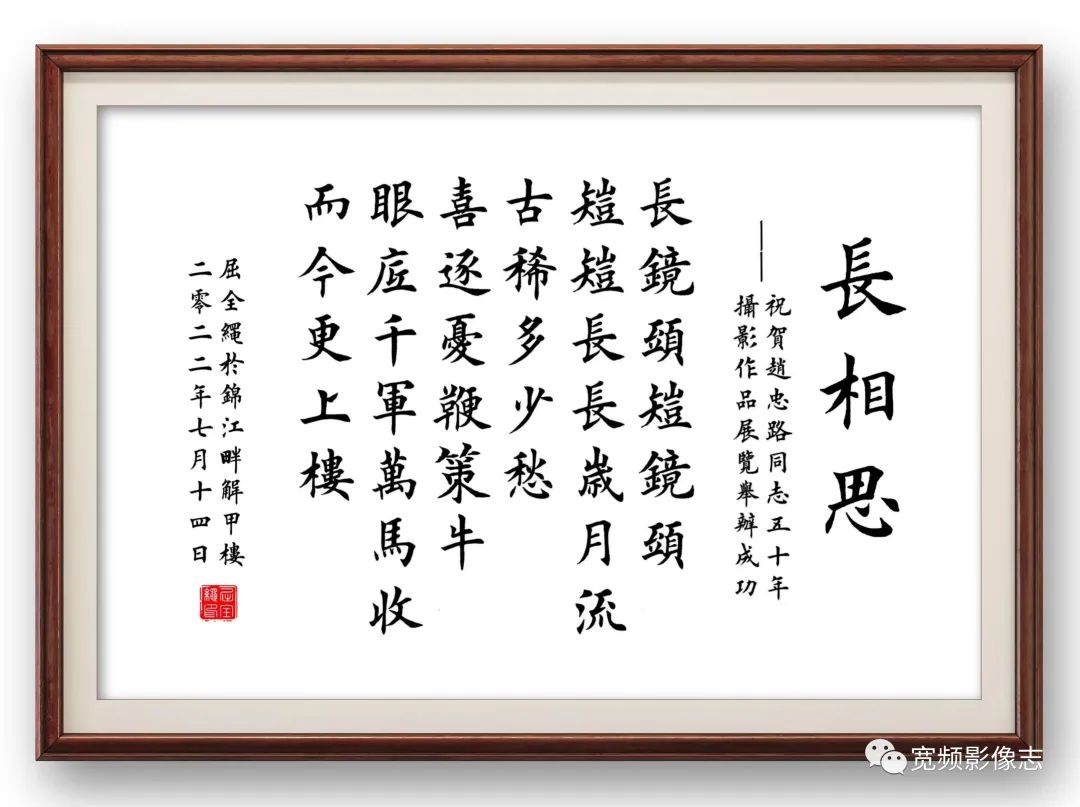 長相思
——祝賀趙忠路同志五十年
攝影作品展覽舉辦成功
長鏡頭短鏡頭
短短長長歲月流
古稀多少愁
喜逐憂鞭策牛
眼底千軍萬馬收
而今更上樓
屈全繩於錦江畔解甲樓
二零二二年七月十四日
屈全繩印
宽频影像志